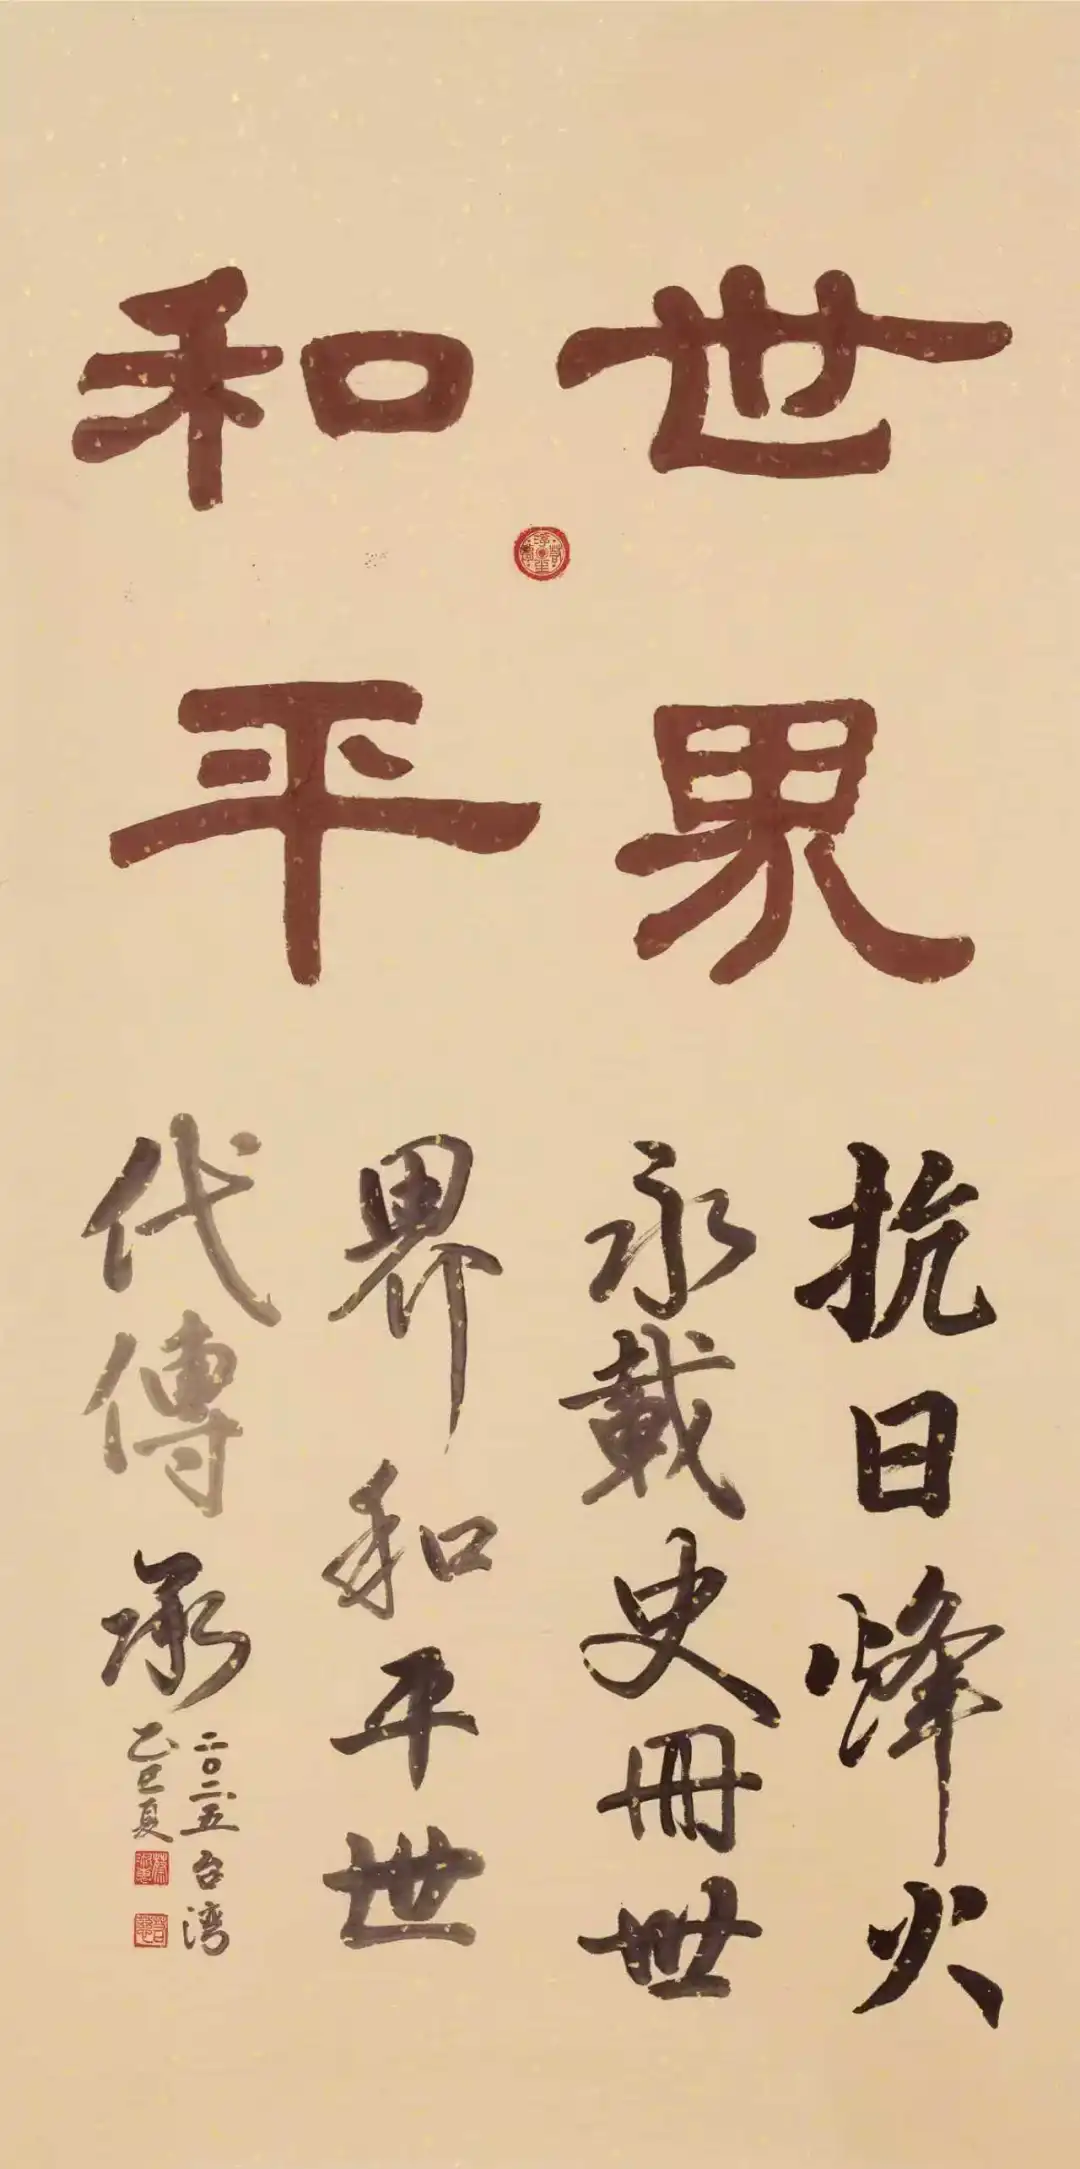 世界
和平
抗日烽火
永載史冊世
界和平世
代傳承
二〇二五台湾
乙巳夏